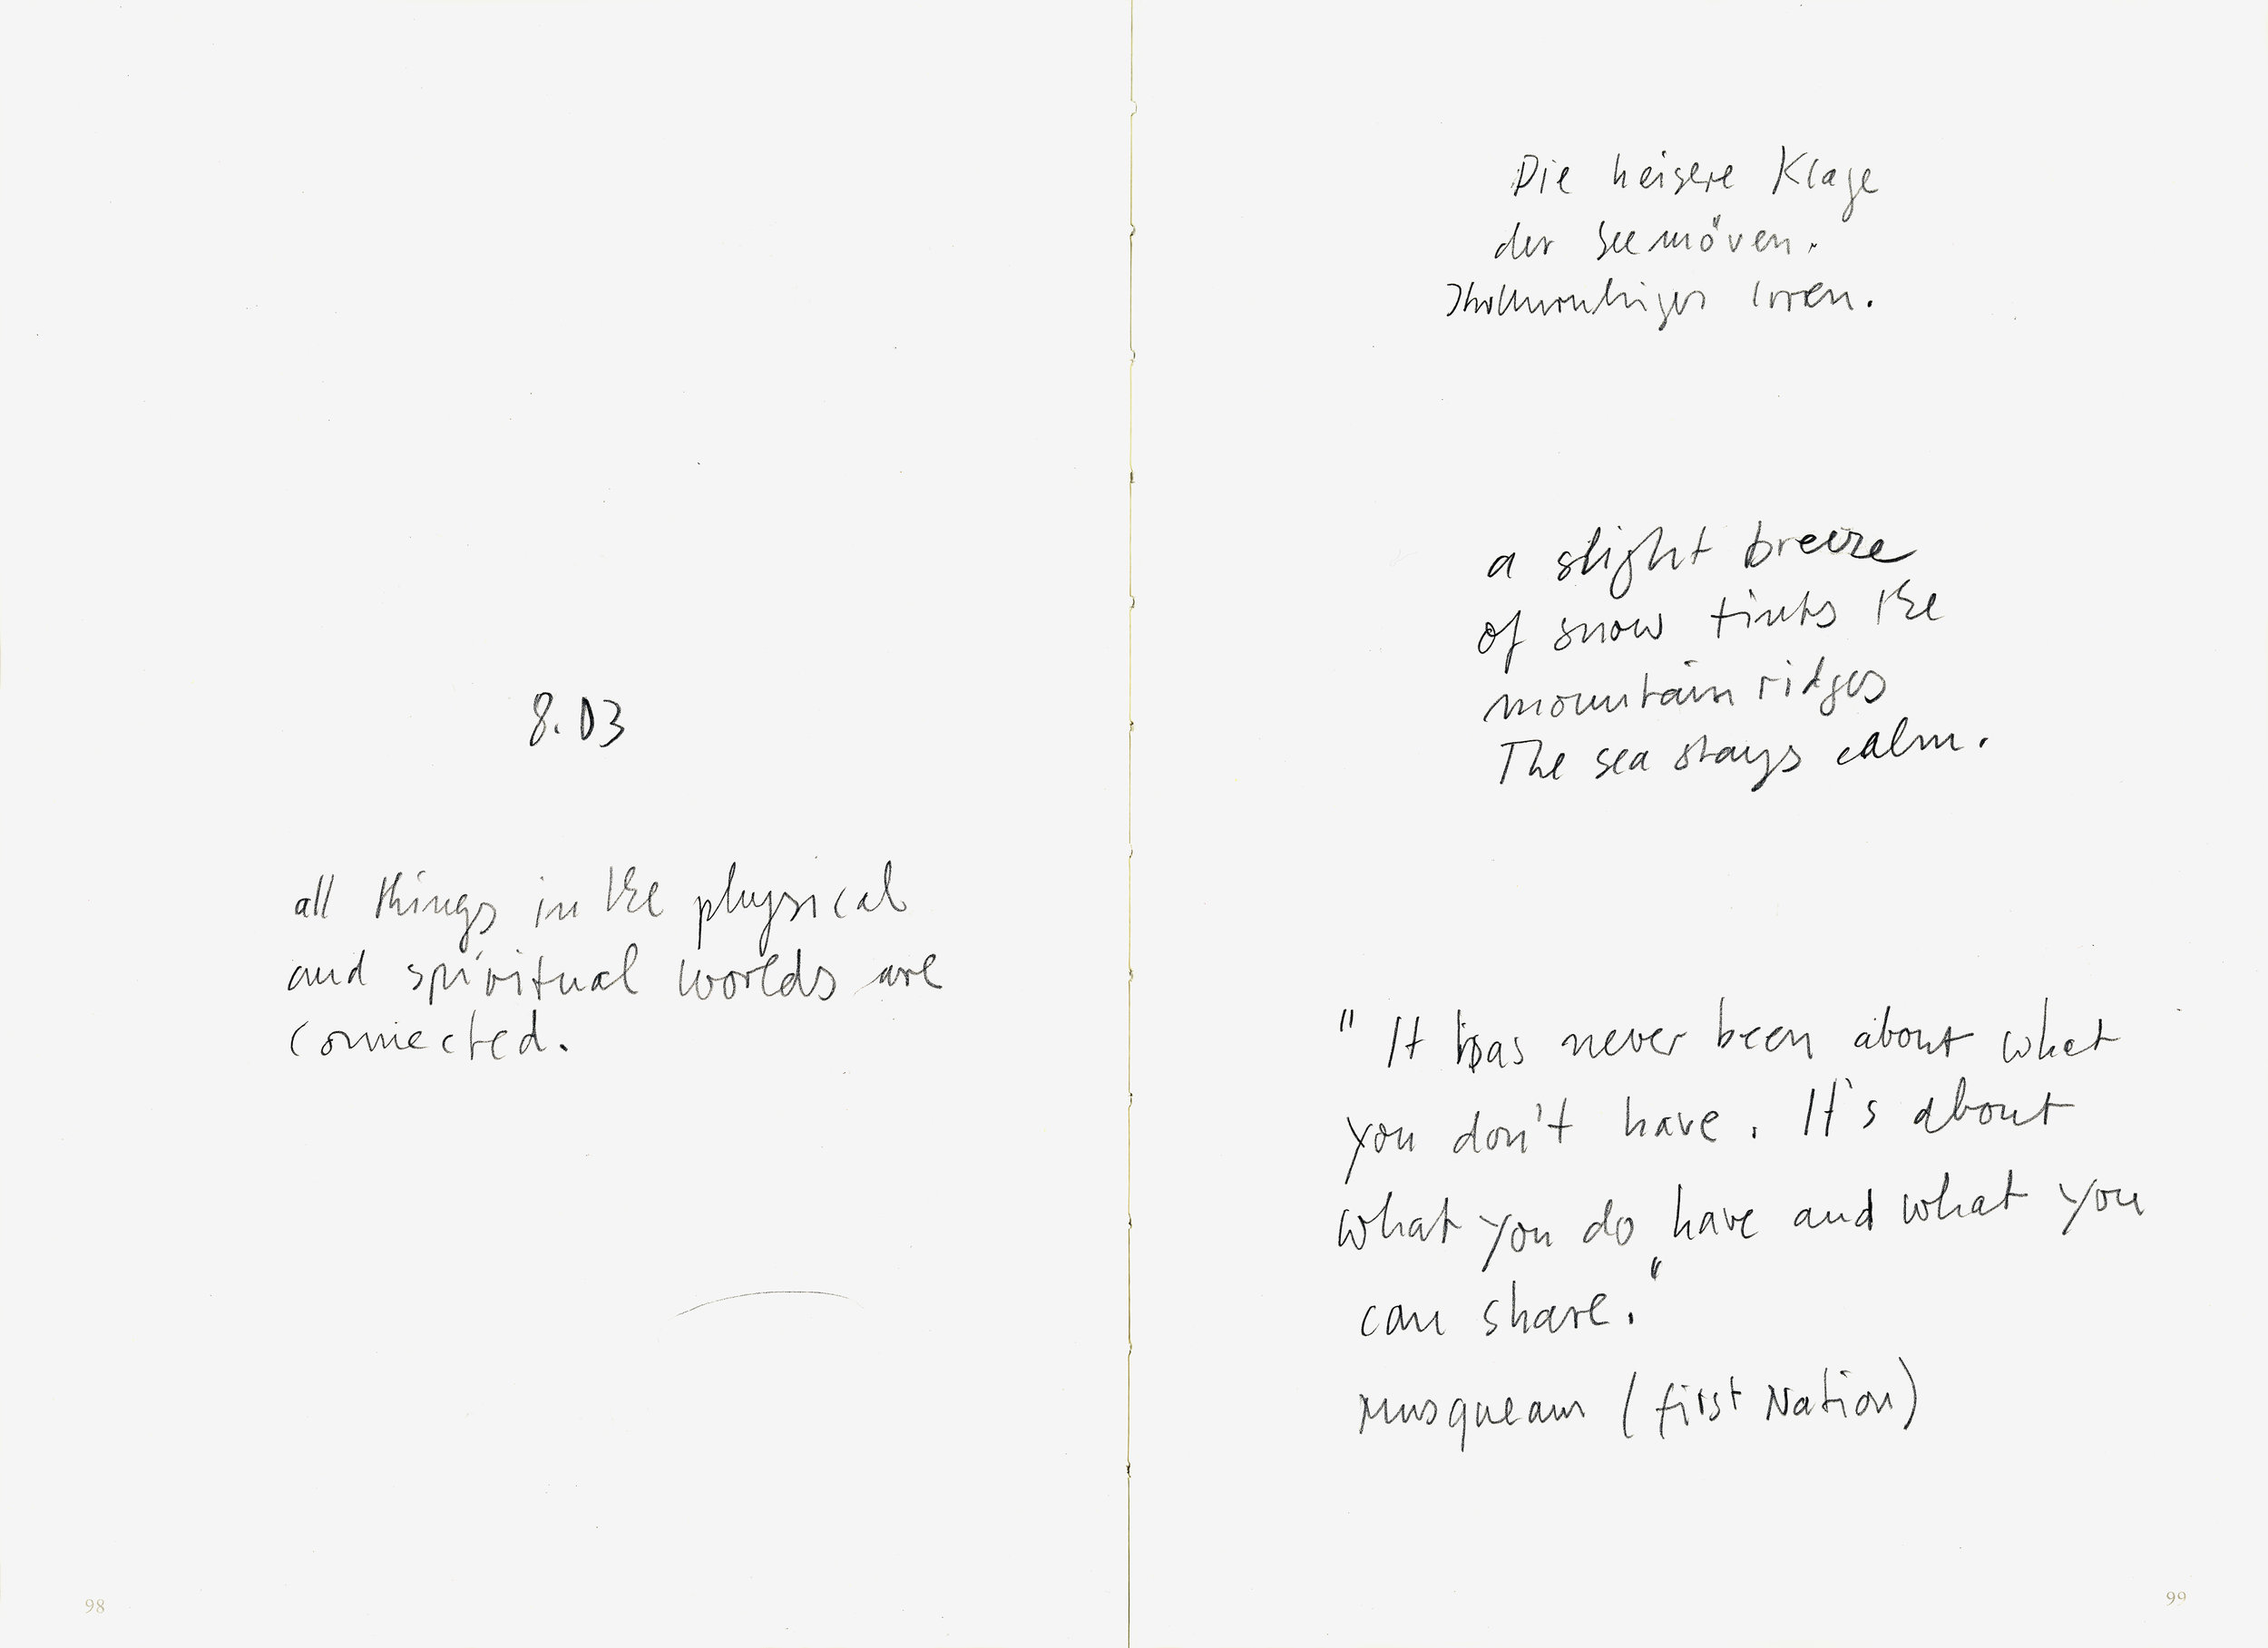 8.03
all things in the physical
and spiritual worlds are
connected.
98
Die heisere Klage
der Seemöven.
Irren.
a slight breeze
of snow tints the
mountain ridges
The sea stays calm.
"It has never been about what
you don't have. It's about
what you do have and what you
can share."
Musqueam (first Nation)
99